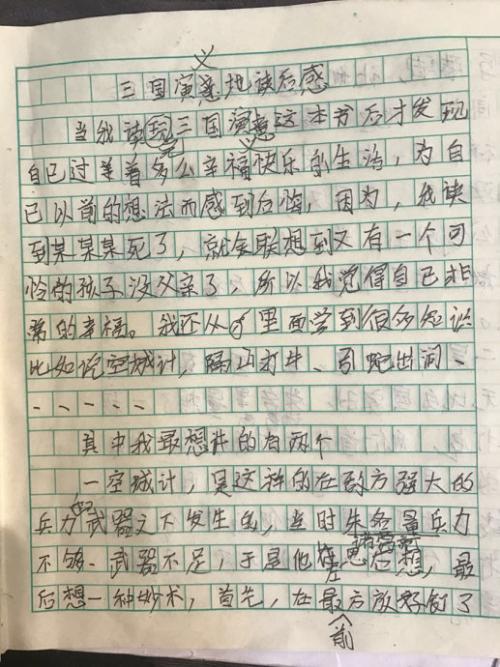 义
三国演意地读后感
当我读现三国演意这本书后才发现
完
自己过着多么幸福快乐的生活，为自
己以前的想法而感到后悔，因为，我读
到某某某死了，就会联想到又有一个可
怜的孩子没父亲了，所以我觉得自己非
常的幸福。我还从中里面学到很多知识
比如说空城计，隔山打牛、引蛇出洞、
、、、、、
其中我最想讲的有两个
一空城计，是这样的在敌方强大的
兵力和武器之下发生的，当时朱各量兵力
诸葛亮
不够、武器不足，于是他左思后想，最
后想一种妙术，首先，在最方放好钉了
前